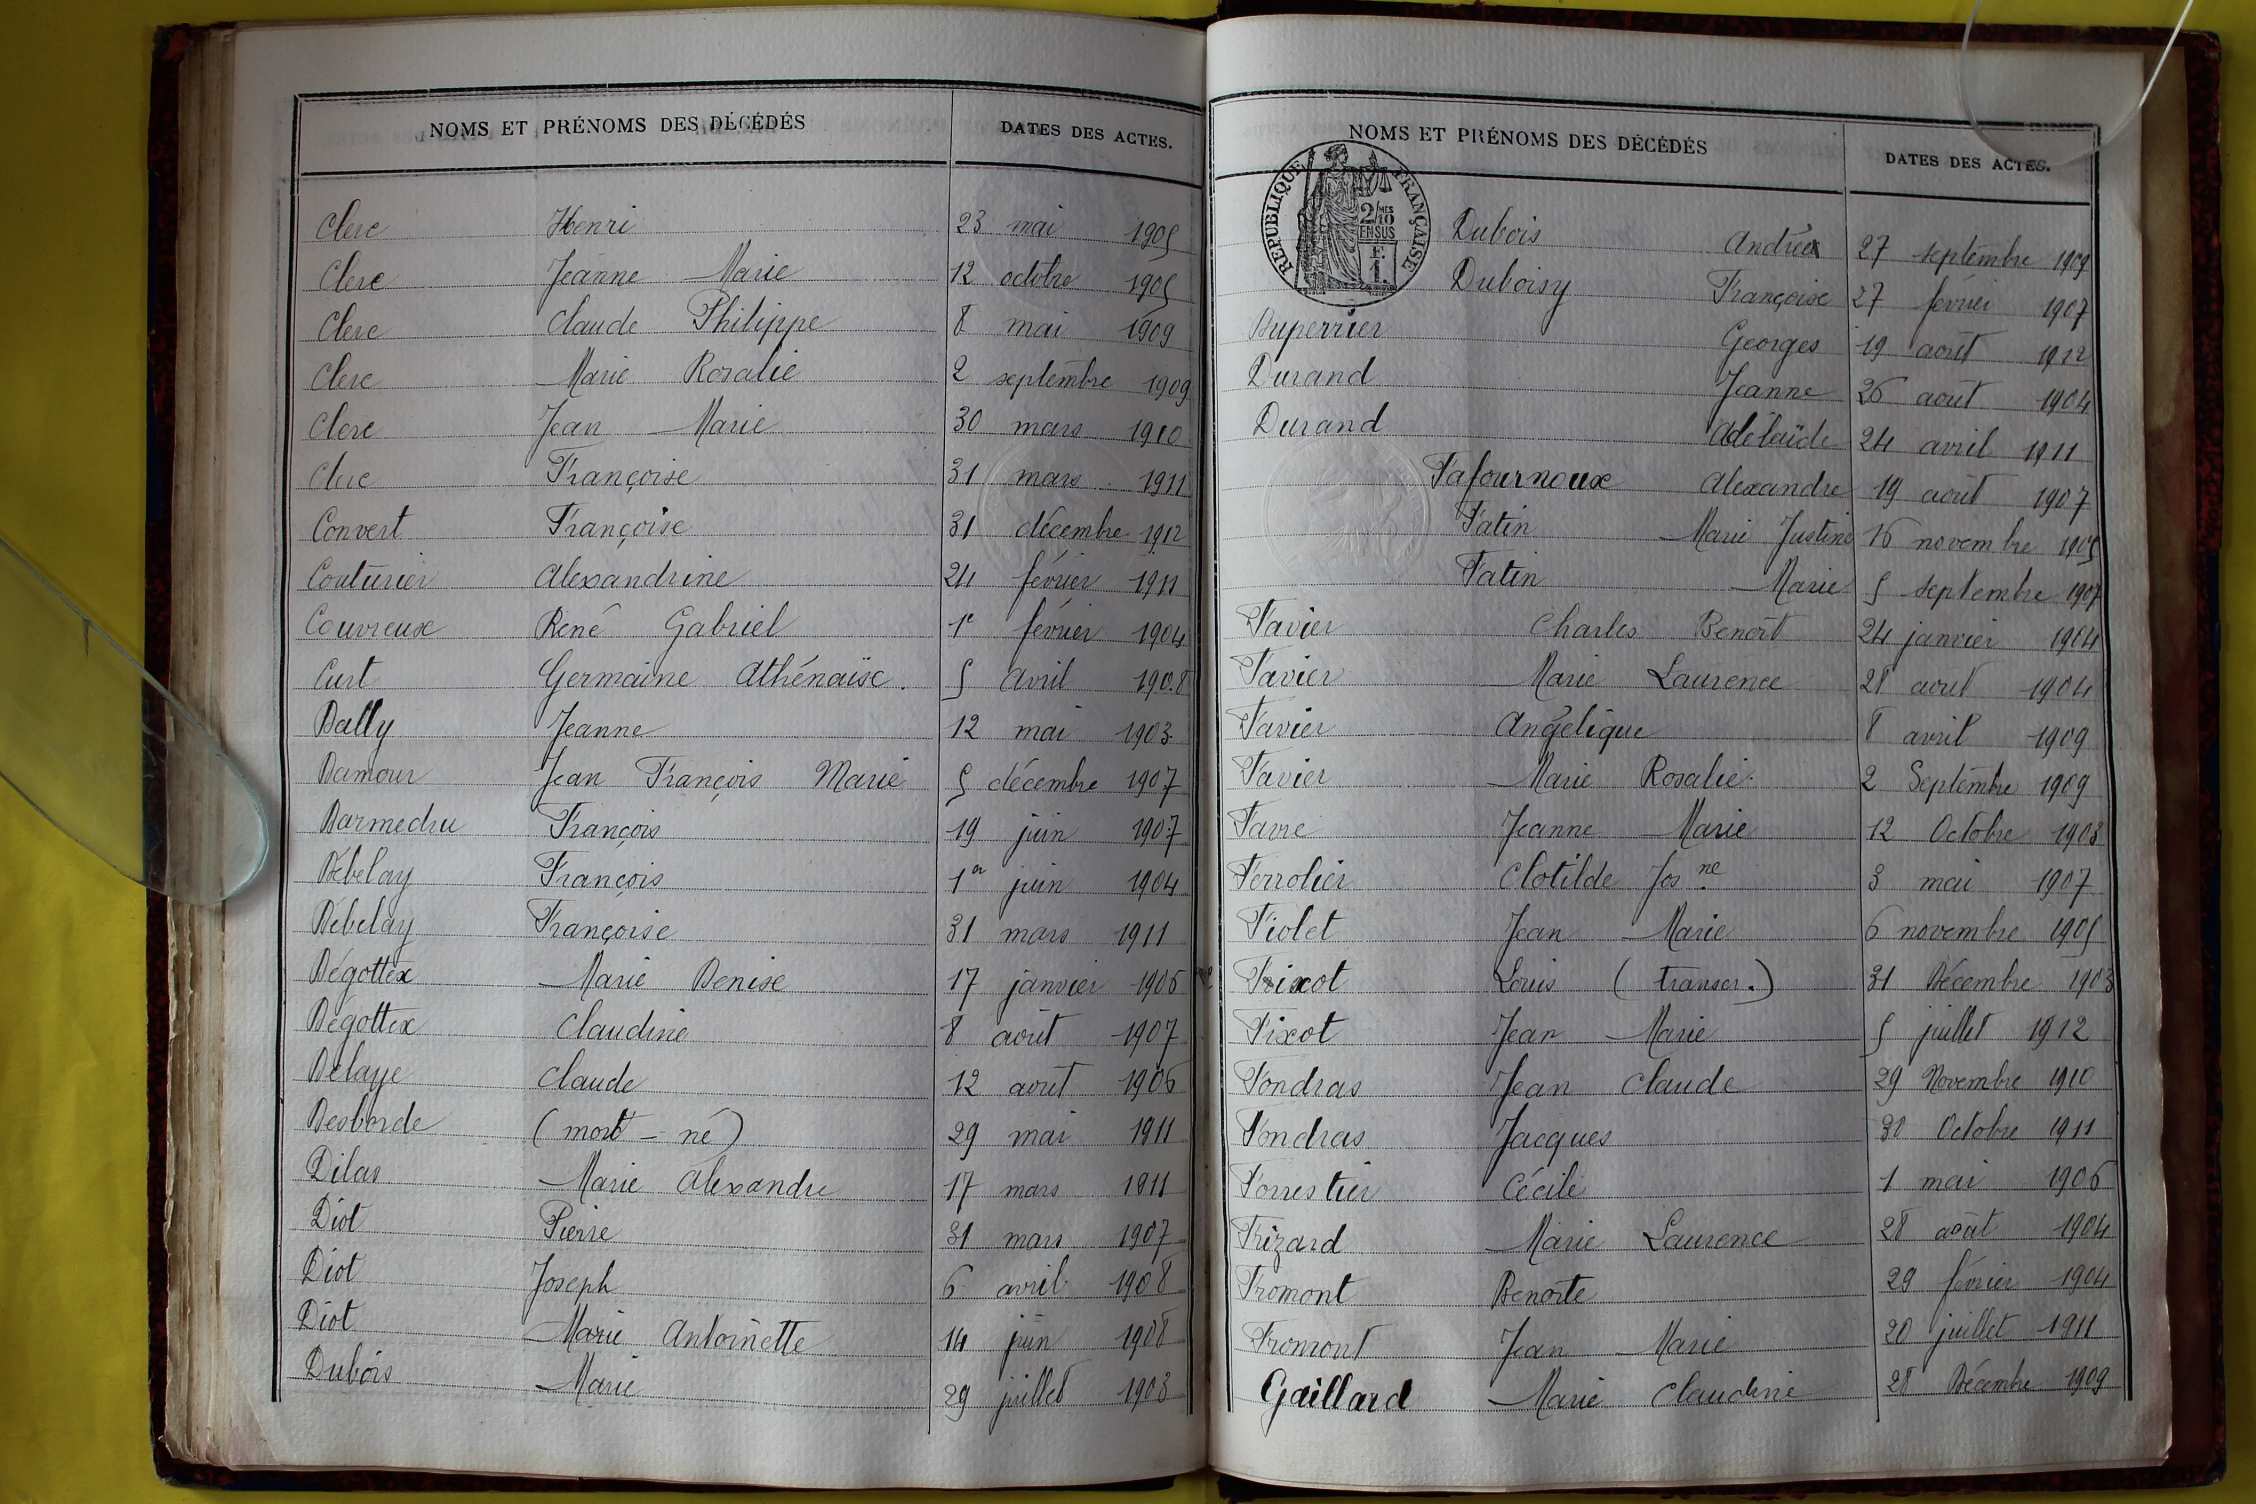 NOMS ET PRÉNOMS DES DÉCÉDÉS DATES DES ACTES.
Clerc Henri 23 mai 1905
Clerc Jeanne Marie 12 octobre 1905
Clerc Claude Philippe 8 mai 1909
Clerc Marie Rosalie 2 septembre 1909
Clerc Jean Marie 30 mars 1910
Clerc Françoise 31 mars 1911
Convert Françoise 31 décembre 1912
Couturier Alexandrine 24 février 1911
Couvreux René Gabriel 1r février 1904
Curt Germaine Athénaïse. 5 Avril 1908
Dally Jeanne 12 mai 1903
Damour Jean François Marie 5 décembre 1907
Darmedru François 19 juin 1907
Débelay François 1er juin 1904
Débelay Françoise 31 mars 1911
Dégottex Marie Denise 17 janvier 1906
Dégottex Claudine 8 août 1907
Delaye Claude 12 août 1906
Desborde (mort-né) 29 mai 1911
Dilas Marie Alexandre 17 mars 1911
Diot Pierre 31 mars 1907
Diot Joseph 6 avril 1908
Diot Marie Antoinette 14 juin 1908
Dubois Marie 29 juillet 1903
NOMS ET PRÉNOMS DES DÉCÉDÉS DATES DES ACTES.
REPUBLIQUE FRANÇAISE
2/10 MES
EN SUS
F.
1.
Dubois Andréa 27 septembre 1909
Duboisy Françoise 27 février 1907
Duperrier Georges 19 août 1912
Durand Jeanne 26 août 1904
Durand Adélaïde 24 avril 1911
Fafournoux Alexandre 19 août 1907
Fatin Marie Justine 16 novembre 1905
Fatin Marie 5 septembre 1907
Favier Charles Benoît 24 janvier 1904
Favier Marie Laurence 28 août 1904
Favier Angélique 8 avril 1909
Favier Marie Rosalie 2 Septembre 1909
Favre Jeanne Marie 12 Octobre 1903
Ferrolier Clotilde Jos.ne 3 mai 1907
Fiolet Jean Marie 6 novembre 1905
Fixot Louis (transcr.) 31 Décembre 1903
Fixot Jean Marie 5 juillet 1912
Fondras Jean Claude 29 Novembre 1910
Fondras Jacques 30 Octobre 1911
Forrestier Cécile 1 mai 1906
Frizard Marie Laurence 28 août 1904
Fromont Benoîte 29 février 1904
Fromont Jean Marie 20 juillet 1911
Gaillard Marie Claudine 28 Décembre 1909